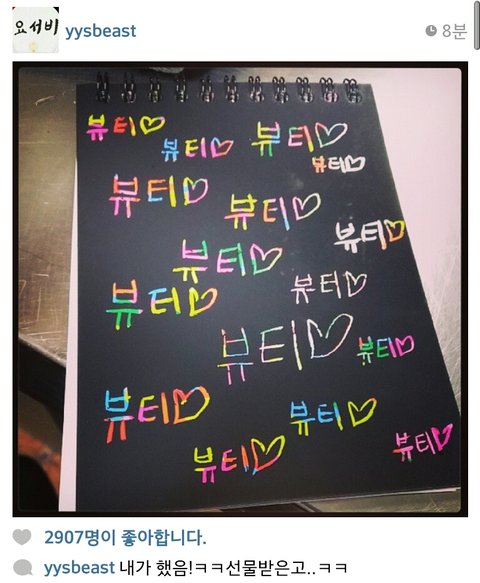 요서비
yysbeast
8분
뷰티♡
뷰티♡
뷰티♡
뷰티♡
뷰티♡
뷰티♡
뷰티♡
뷰티♡
뷰티♡
뷰티♡
뷰티♡
뷰티♡
뷰티♡
뷰티♡
뷰티♡
뷰티♡
2907명이 좋아합니다.
yysbeast 내가 했음!ㅋㅋ선물받은고..ㅋㅋ